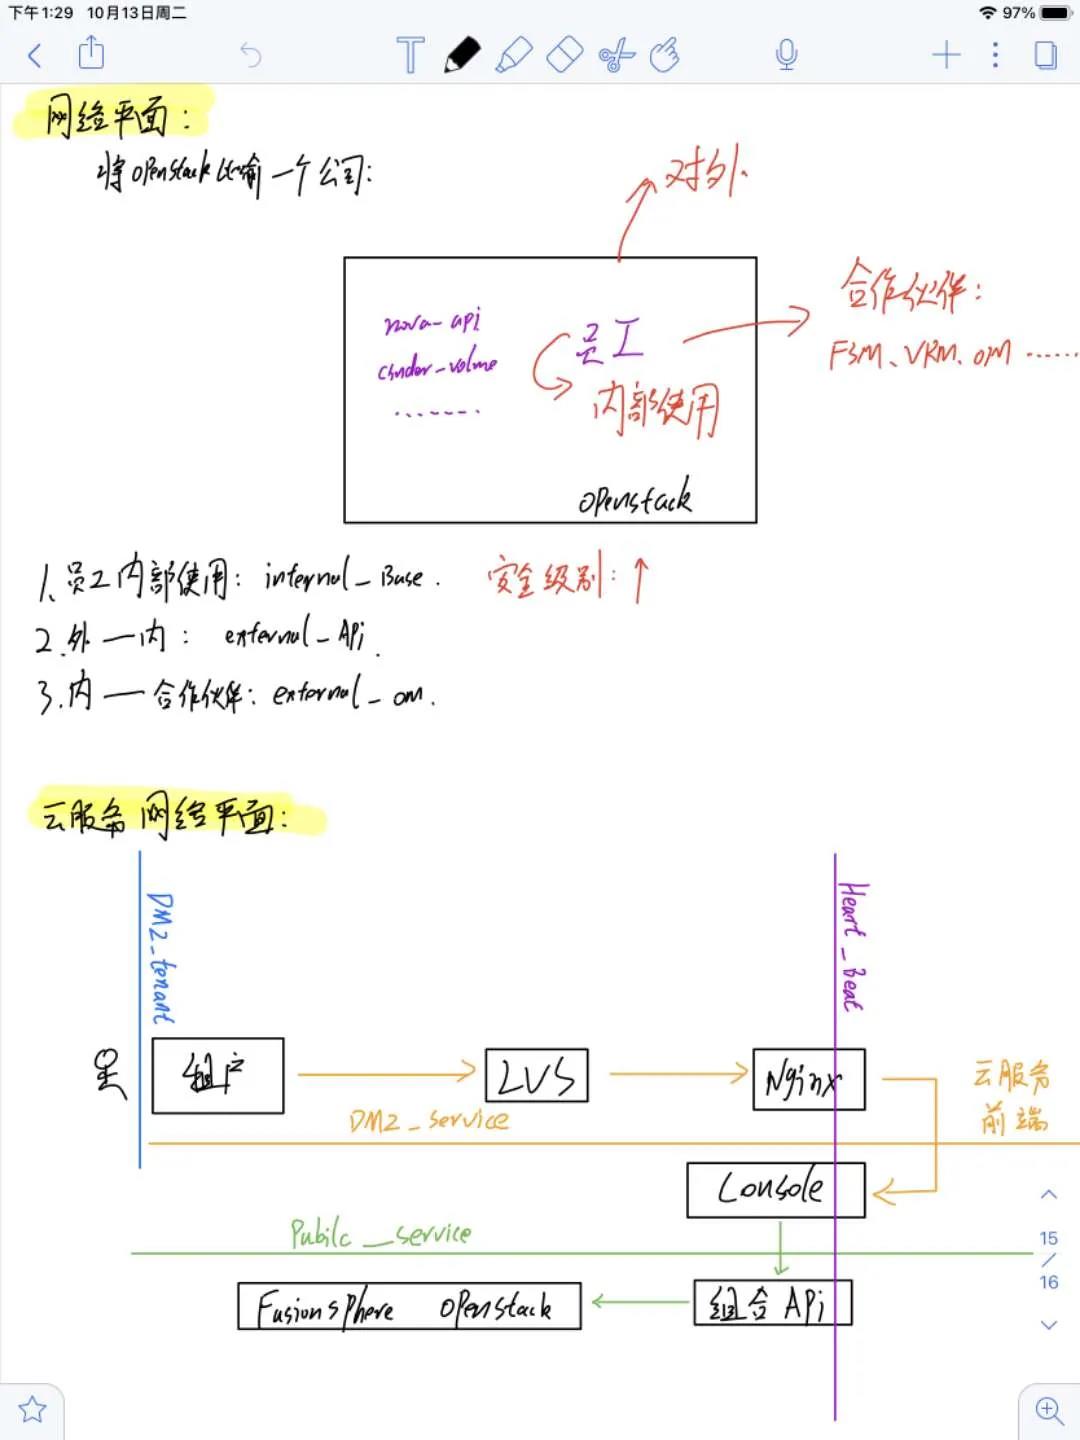 下午1:29 10月13日周二 97%
网络平面:
将openstack比喻一个公司:
对外
合作伙伴:
FSM、VRM、OM ······
nova-api
cinder_volme
·······
员工
内部使用
openstack
1、员工内部使用: internal_Base. 安全级别:↑
2.外一内: external_Api.
3.内一合作伙伴: external_om.
云服务网络平面:
DMZ_tenant
Heart_Beat
租户
LVS
Nginx
云服务
前端
DMZ_service
Console
Pubilc_service
15
/
16
Fusionsphere openstack
组合 APi